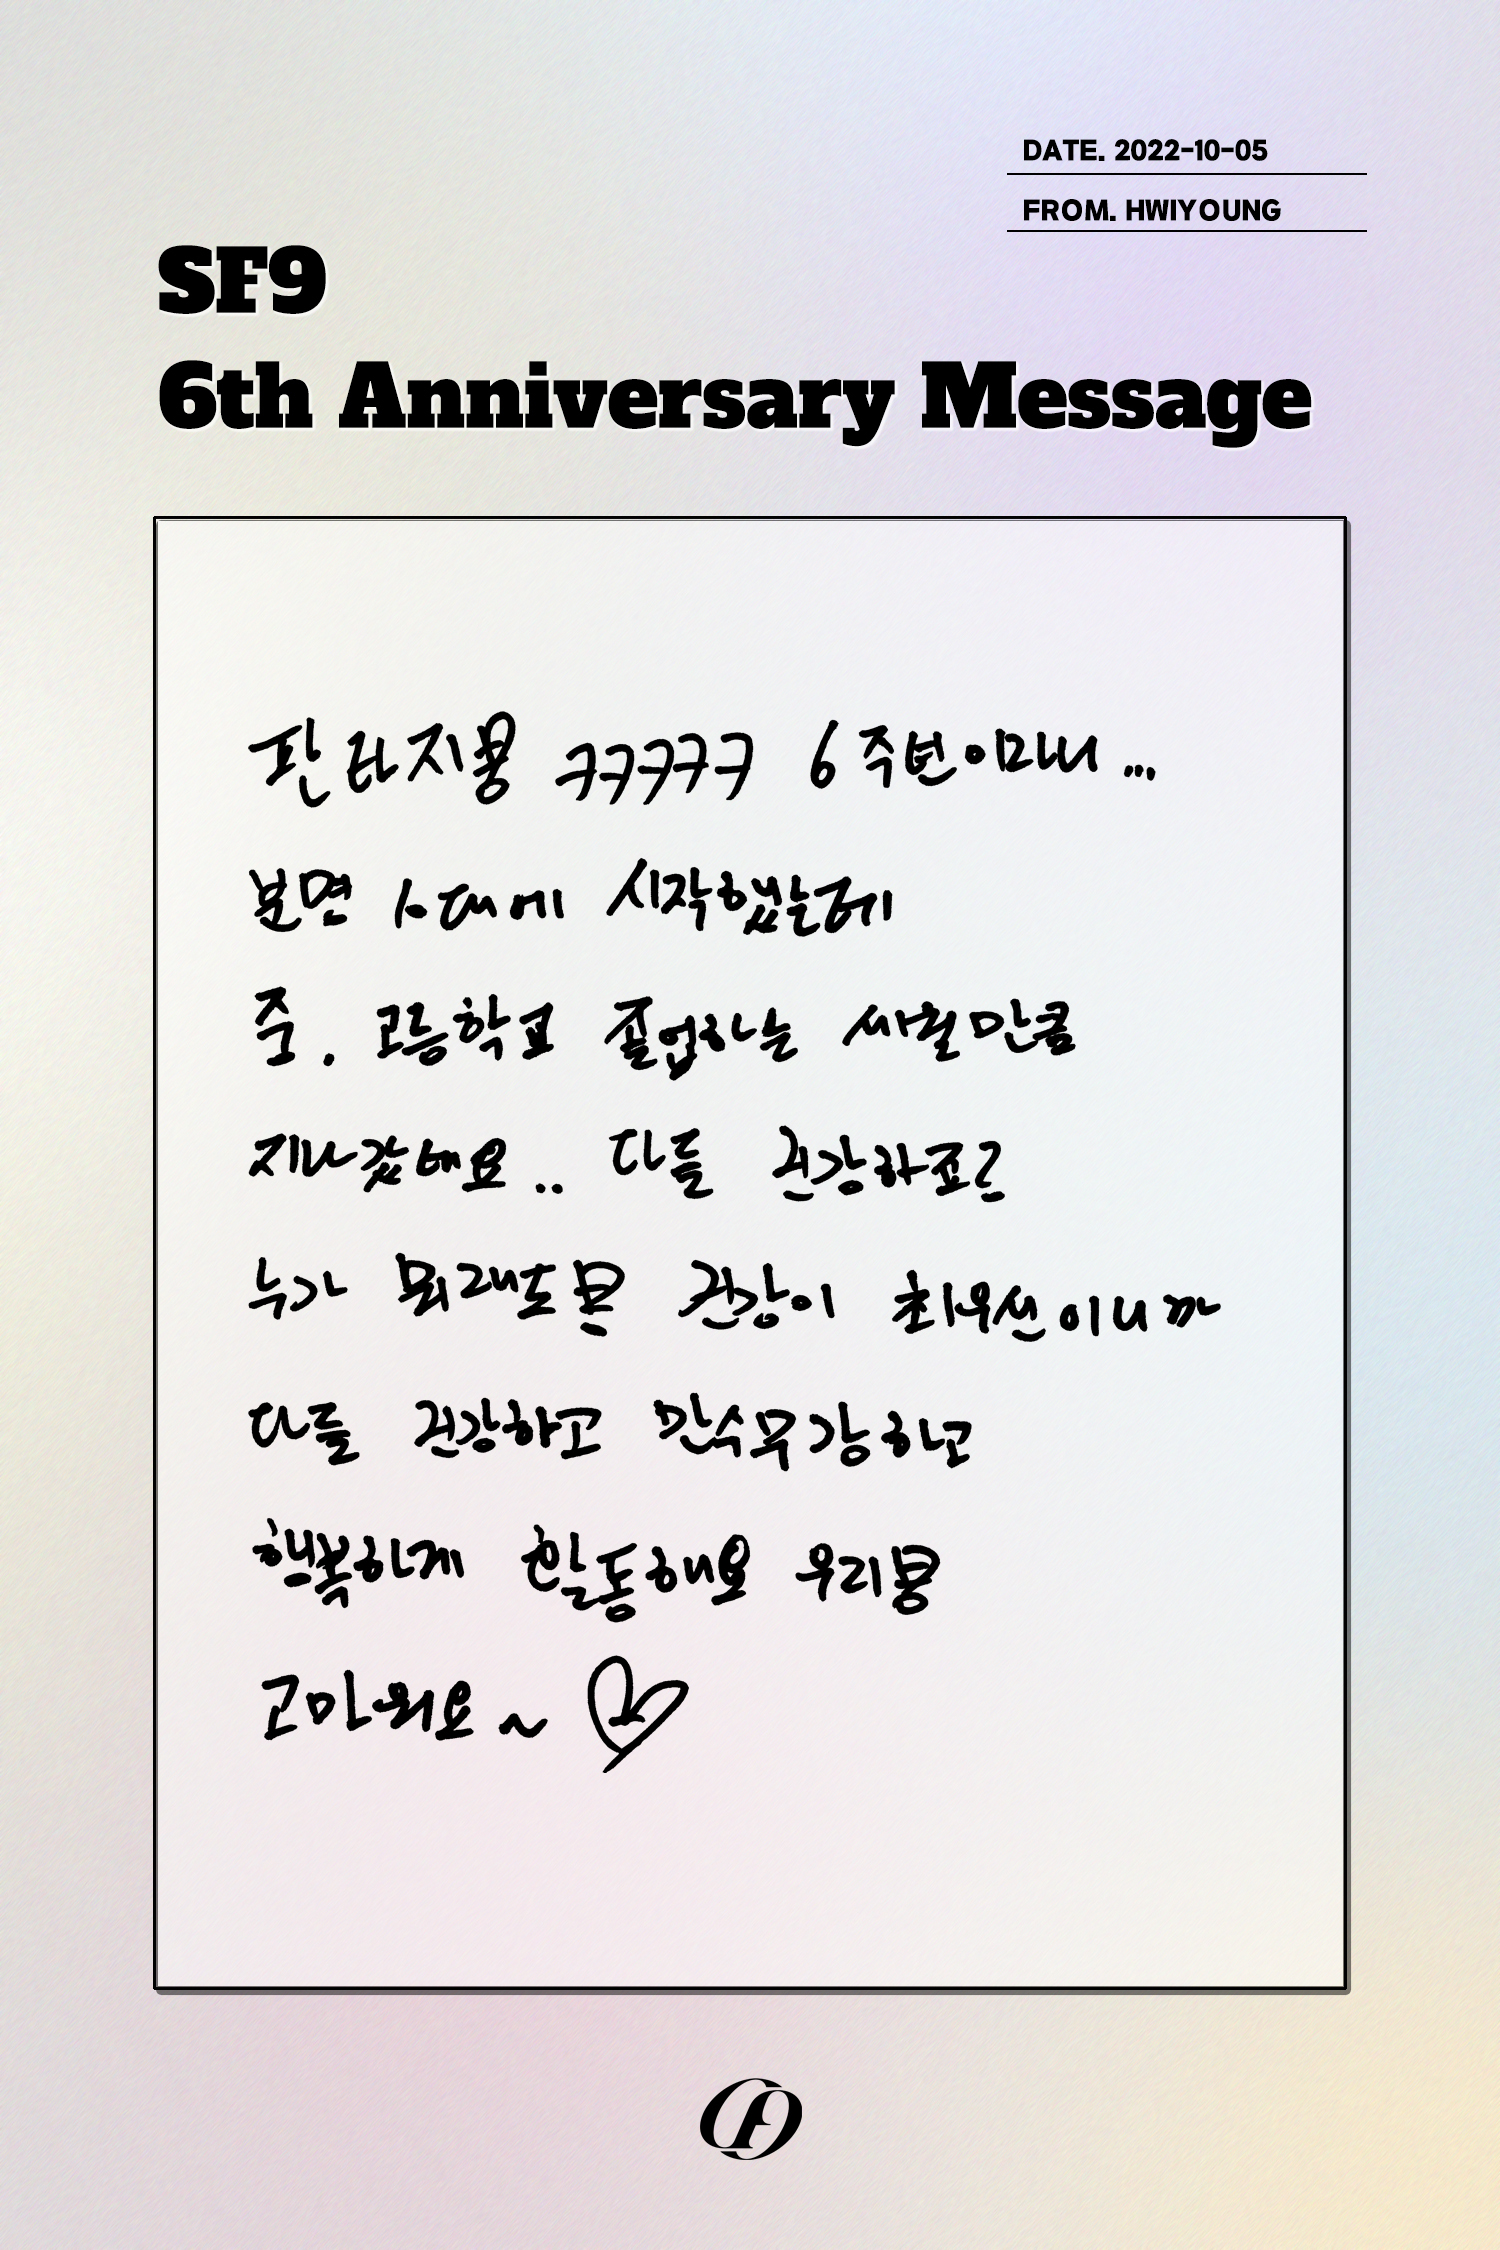 DATE. 2022-10-05
FROM. HWIYOUNG
SF9
6th Anniversary Message
판타지뿅 ㅋㅋㅋㅋㅋ 6주년이라니...
보면 10대에 시작했는데
중. 고등학교 졸업하는 세월만큼
지나갔네요.. 다들 건강하죠?
누가 뭐래도 건강이 최우선이니까
다들 건강하고 만수무강하고
행복하게 활동해요 우리뿅
고마워요~